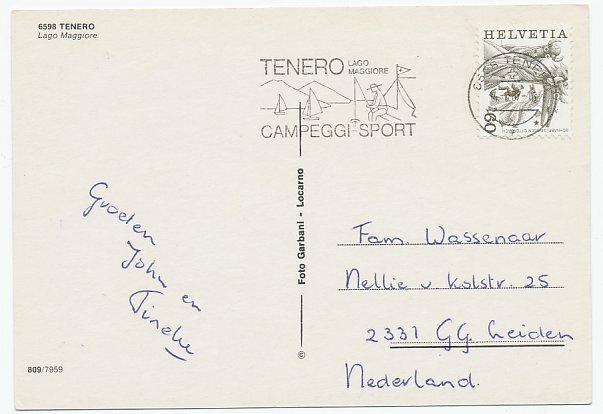 6598 TENERO
Lago Maggiore
TENERO LAGO MAGGIORE
CAMPEGGI-SPORT
HELVETIA
6598 TENERO
60
Groeten
John en
Tineke
Foto Garbani - Locarno
©
Fam. Wassenaar
Nellie v. Kolstr. 25
2331 GG Leiden
Nederland.
809/7959